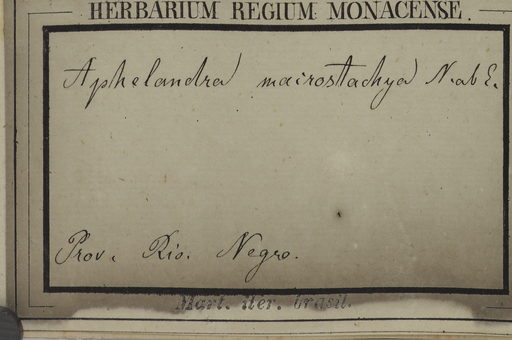 HERBARIUM REGIUM MONACENSE.
Aphelandra macrostachya N.ab E.
Prov. Rio. Negro.
Mart. iter. brasil.